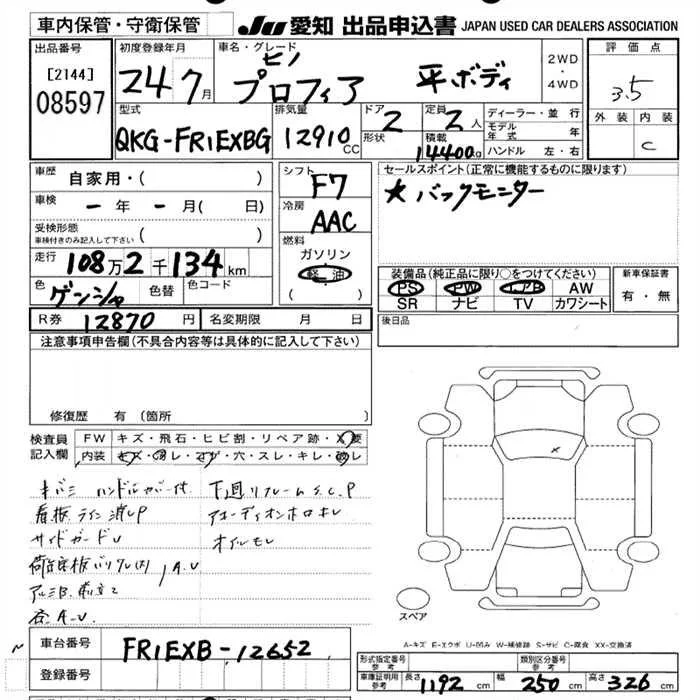 車内保管・守衛保管 JU 愛知 出品申込書 JAPAN USED CAR DEALERS ASSOCIATION
出品番号 [2144] 08597
初度登録年月 24 7月
車名・グレード ヒノ プロフィア 平ボディ
2WD・4WD
評価点 3.5
外装 内装 C
型式 QKG-FR1EXBG
排気量 12910 CC
ドア 2 形状
定員 2人
積載 14400kg
ディーラー・並行
モデル年式 年
ハンドル 左・右
車歴 自家用・( )
車検 ー年ー月( 日)
受検形態 車検付きのみ記入して下さい ( )
走行 108万2千134km
色 ゲンシャ 色替 色コード
シフト F7
冷房 AAC
燃料 ガソリン 軽油 ( )
セールスポイント(正常に機能するものに限ります)
★バックモニター
装備品(純正品に限り○をつけてください) 新車保証書
PS PW エアB AW 有・無
SR ナビ TV カワシート
R券 12870円 名変期限 月 日
後日品
注意事項申告欄(不具合内容等は具体的に記入して下さい)
修復歴 有(箇所 )
検査員記入欄 FW キズ・飛石・ヒビ割・リペア跡・X要
内装 キズ・汚レ・コゲ・穴・スレ・キレ・破レ
キバミ ハンドルカバー付 下廻リフレームS.C.P
看板ライン消しP アコーディオンホロキレ
サイドガードU オイルモレ
A.U
谷A.U
スペア
A-キズ E-エクボ U-凹み W-補修跡 S-サビ C-腐食 XX-交換済
車台番号 FR1EXB-12652
登録番号
形式指定番号 参考 類別区分番号 参考
車庫証明用 参考 長さ 1192cm 幅 250cm 高さ 326cm